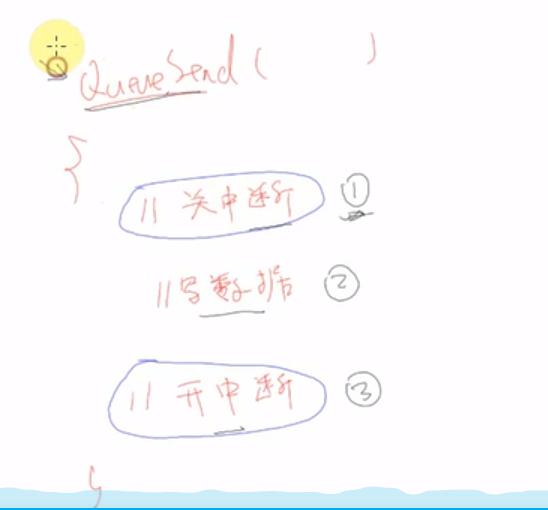 xQueueSend (        )
{
// 关中断 ①
// 写数据 ②
// 开中断 ③
}